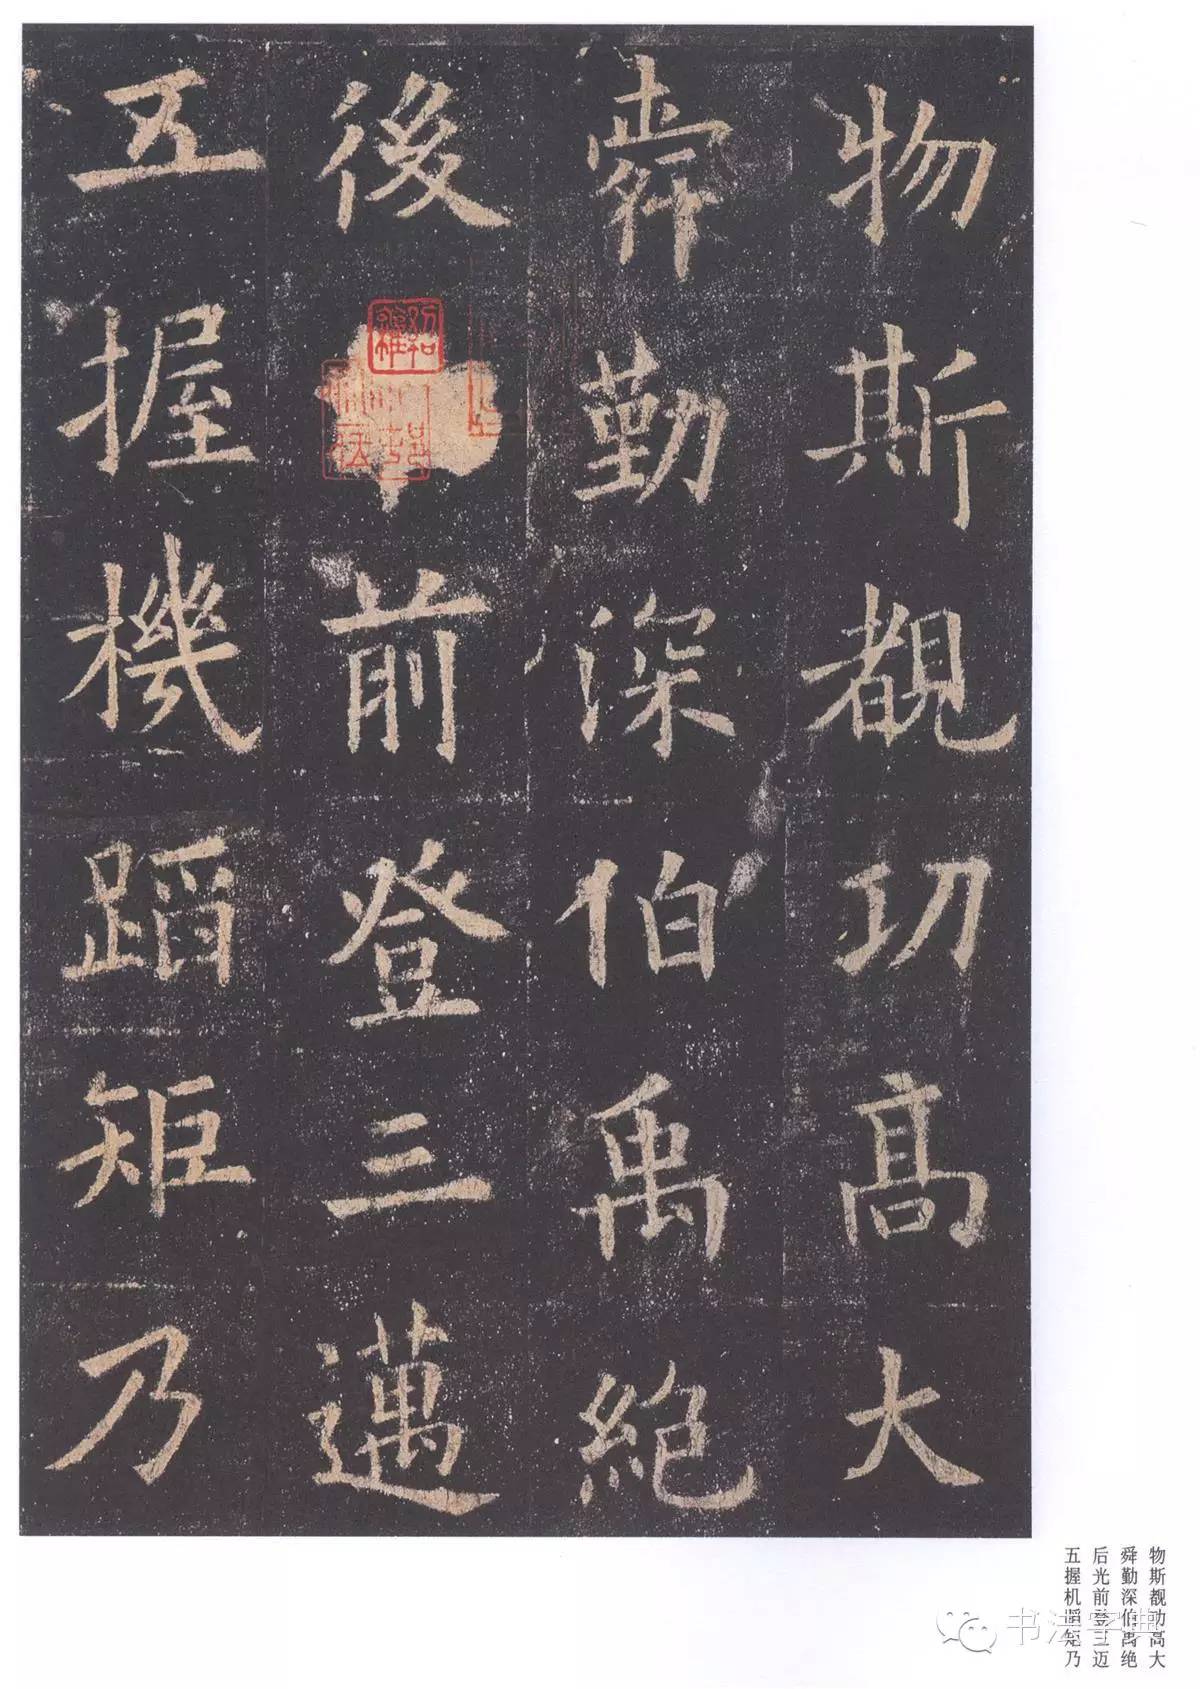 物斯覩功高大
舜勤深伯禹絶
後前登三邁
五握機蹈矩乃
物斯觏功高大
舜勤深伯禹绝
后光前登三迈
五握机蹈矩乃
书法字典